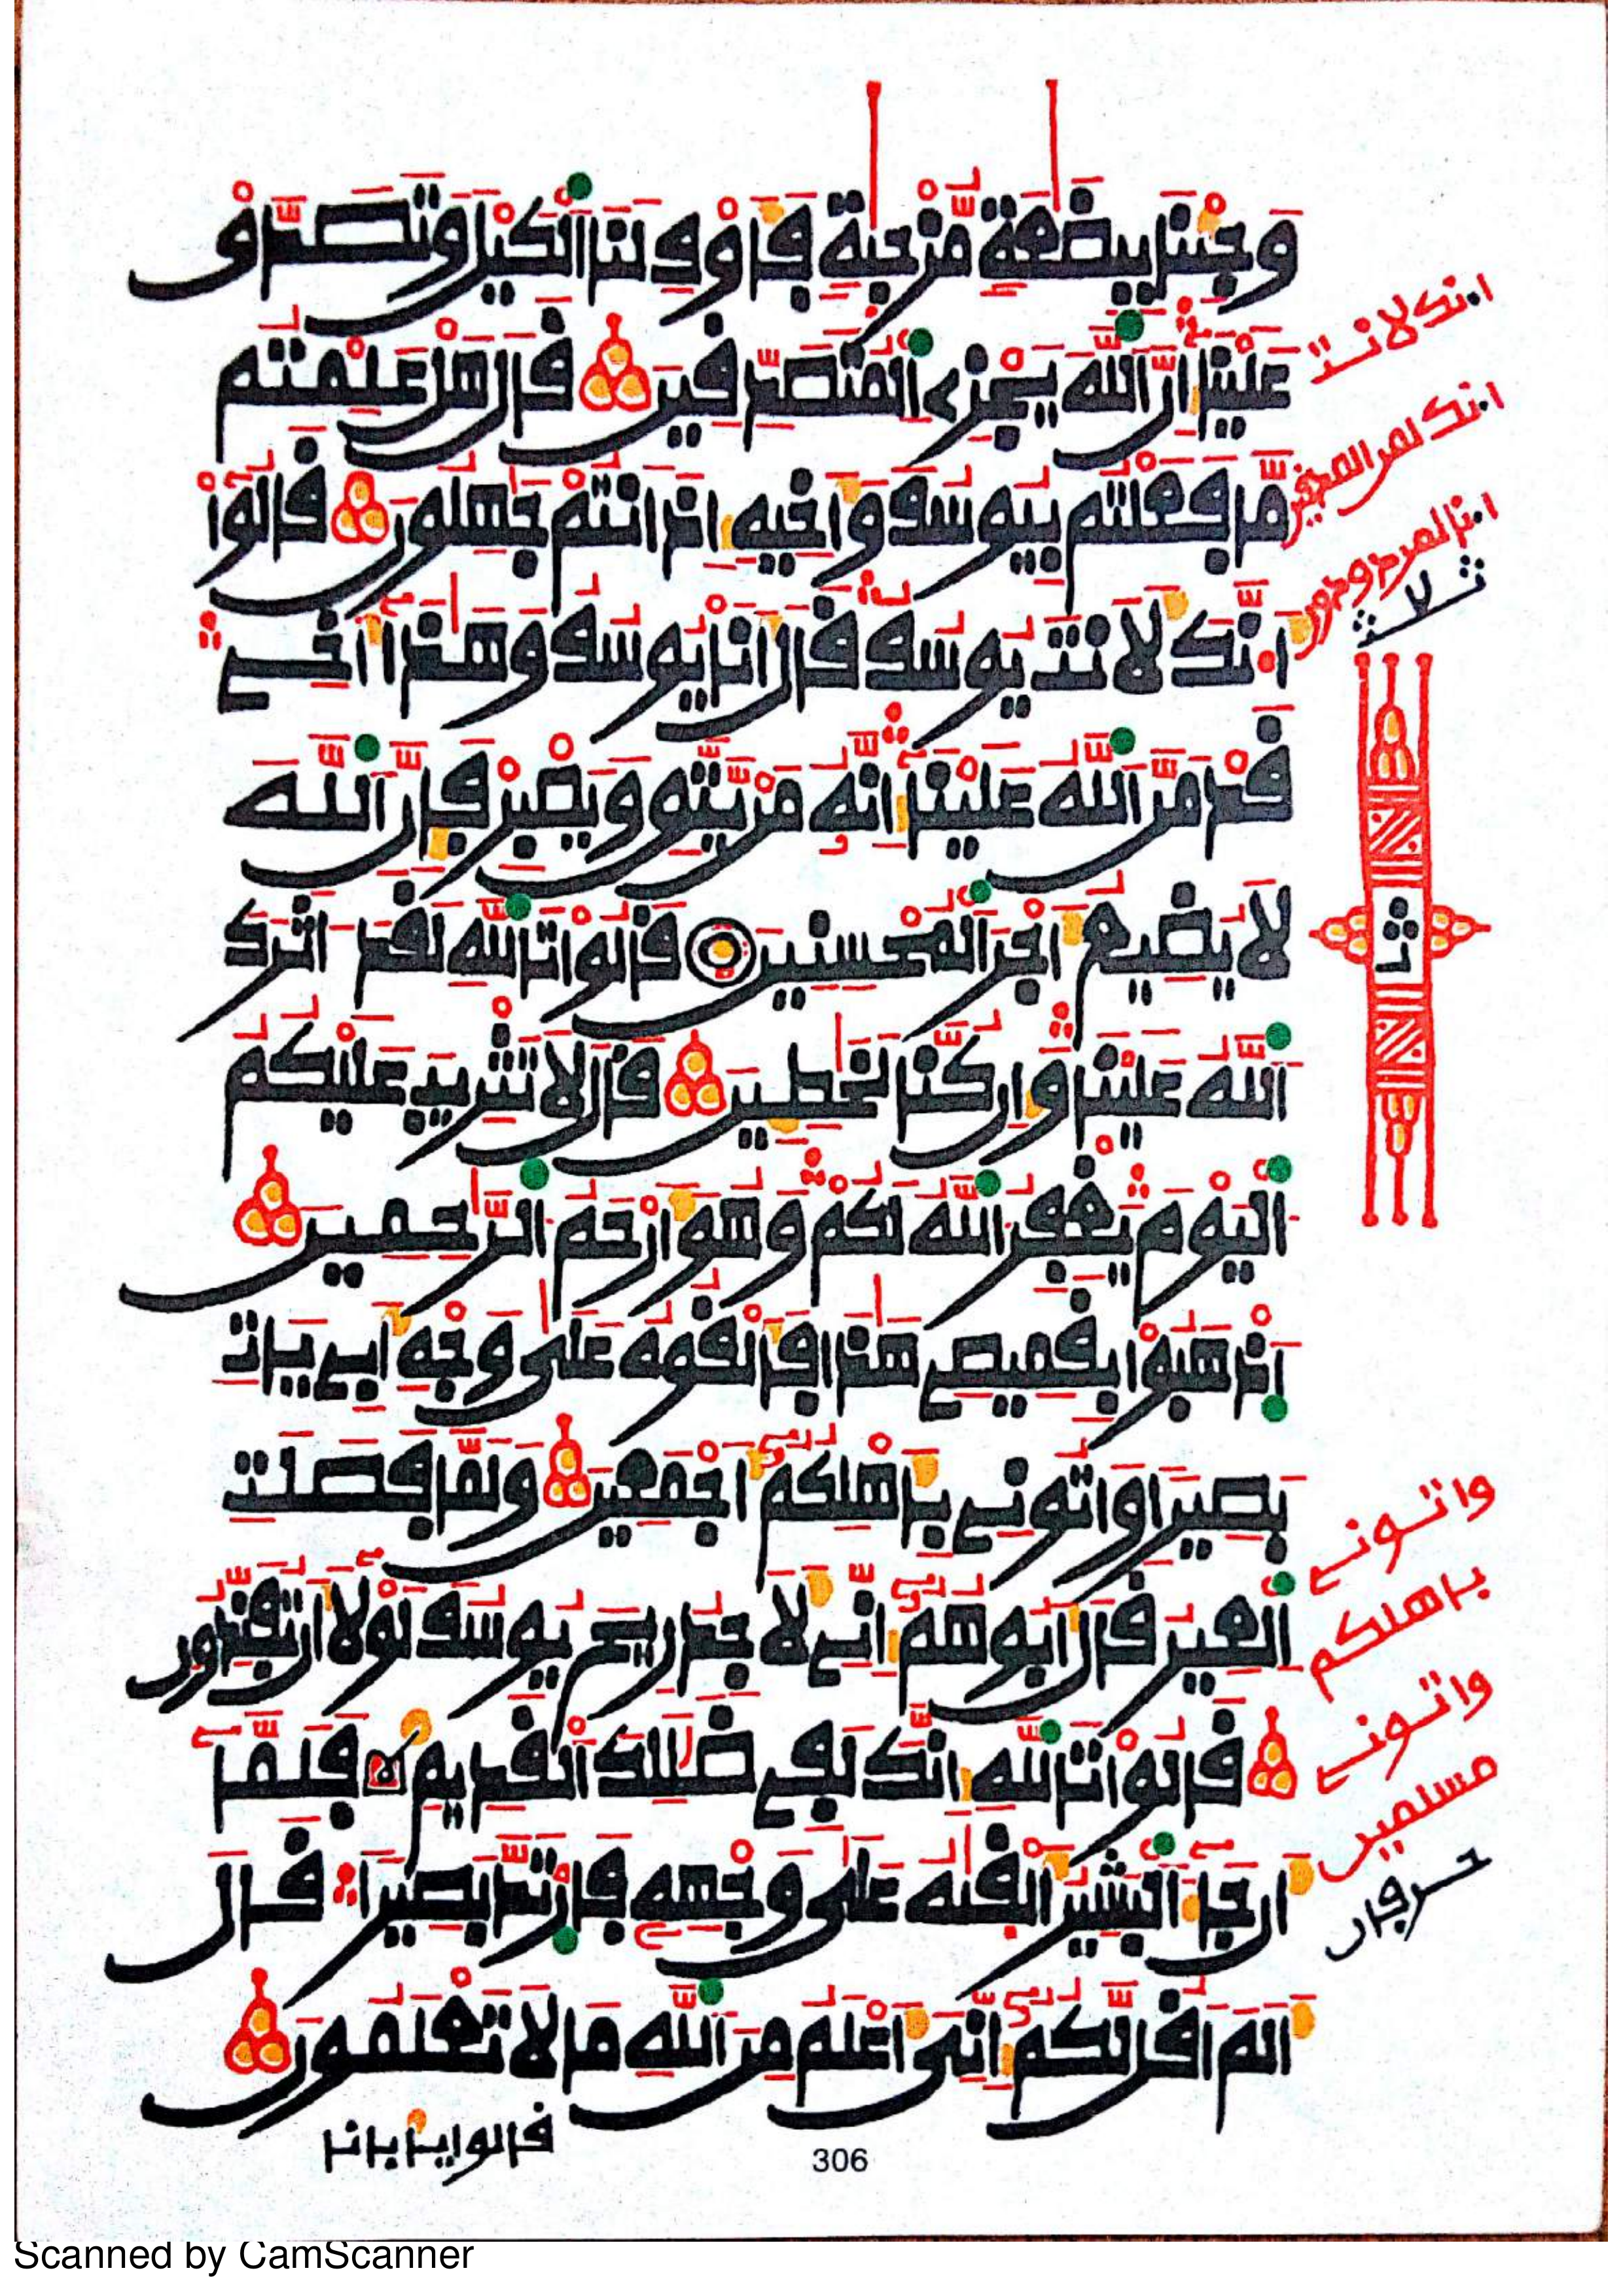 وَجِئْنَا بِبِضَٰعَةٍ مُّزْجَىٰةٍ فَأَوْفِ لَنَا اَ۬لْكَيْلَ وَتَصَدَّقْ
عَلَيْنَا إِنَّ اَ۬للَّهَ يَجْزِے اِ۬لْمُتَصَدِّقِينَ قَالَ هَلْ عَلِمْتُم
مَّا فَعَلْتُم بِيُوسُفَ وَأَخِيهِ إِذْ أَنتُمْ جَٰهِلُونَ قَالُوٓاْ
أَ۟نَّكَ لَأَنتَ يُوسُفُ قَالَ أَنَا يُوسُفُ وَهَٰذَآ أَخِے
قَدْ مَنَّ اَ۬للَّهُ عَلَيْنَآ إِنَّهُۥ مَنْ يَّتَّقِ وَيَصْبِرْ فَإِنَّ اَ۬للَّهَ
لَا يُضِيعُ أَجْرَ اَ۬لْمُحْسِنِينَ قَالُواْ تَاللَّهِ لَقَدَ اٰثَرَكَ
اَ۬للَّهُ عَلَيْنَا وَإِن كُنَّا لَخَٰطِـِٕينَ قَالَ لَا تَثْرِيبَ عَلَيْكُمُ
اُ۬لْيَوْمَ يَغْفِرُ اُ۬للَّهُ لَكُمْ وَهُوَ أَرْحَمُ اُ۬لرَّٰحِمِينَ
اَ۪ذْهَبُواْ بِقَمِيصِے هَٰذَا فَأَلْقُوهُ عَلَىٰ وَجْهِ أَبِے يَاتِ
بَصِيراً وَاتُونِے بِأَهْلِكُمُۥٓ أَجْمَعِينَ وَلَمَّا فَصَلَتِ
اِ۬لْعِيرُ قَالَ أَبُوهُمُۥٓ إِنِّے لَأَجِدُ رِيحَ يُوسُفَ لَوْلَآ أَن تُفَنِّدُونِ
قَالُواْ تَاللَّهِ إِنَّكَ لَفِے ضَلَٰلِكَ اَ۬لْقَدِيمِ فَلَمَّآ
أَن جَآءَ اَ۬لْبَشِيرُ أَلْقَىٰهُ عَلَىٰ وَجْهِهِۦ فَارْتَدَّ بَصِيراً قَالَ
أَلَمَ اَقُل لَّكُمُۥٓ إِنِّيَ أَعْلَمُ مِنَ اَ۬للَّهِ مَا لَا تَعْلَمُونَ
قالوا يأبانا
306
انك لانت
انك لمن المصدقين
انا لمردودون
ثلاث
واتونے
باهلكم
واتونے
مسلمين
Scanned by CamScanner